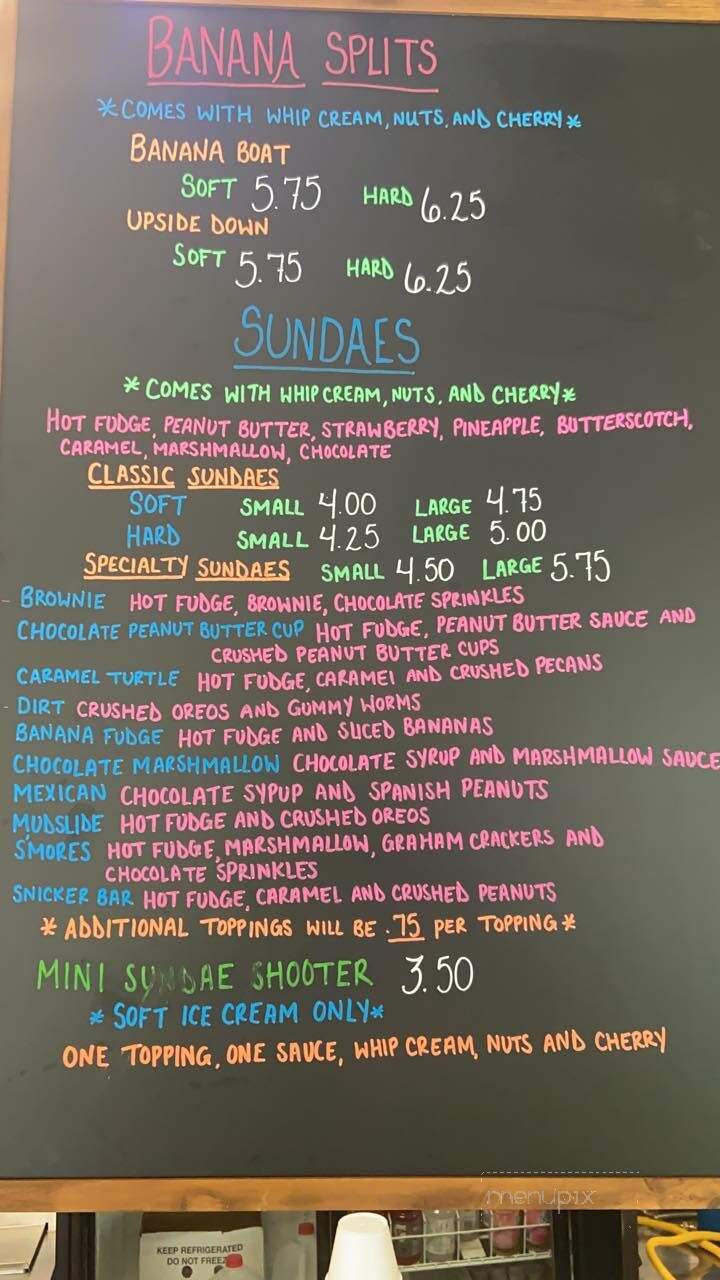 BANANA SPLITS
*COMES WITH WHIP CREAM, NUTS, AND CHERRY*
BANANA BOAT
SOFT 5.75 HARD 6.25
UPSIDE DOWN
SOFT 5.75 HARD 6.25
SUNDAES
*COMES WITH WHIP CREAM, NUTS, AND CHERRY*
HOT FUDGE, PEANUT BUTTER, STRAWBERRY, PINEAPPLE, BUTTERSCOTCH,
CARAMEL, MARSHMALLOW, CHOCOLATE
CLASSIC SUNDAES
SOFT SMALL 4.00 LARGE 4.75
HARD SMALL 4.25 LARGE 5.00
SPECIALTY SUNDAES SMALL 4.50 LARGE 5.75
- BROWNIE HOT FUDGE, BROWNIE, CHOCOLATE SPRINKLES
CHOCOLATE PEANUT BUTTER CUP HOT FUDGE, PEANUT BUTTER SAUCE AND
CRUSHED PEANUT BUTTER CUPS
CARAMEL TURTLE HOT FUDGE, CARAMEL AND CRUSHED PECANS
- DIRT CRUSHED OREOS AND GUMMY WORMS
BANANA FUDGE HOT FUDGE AND SLICED BANANAS
CHOCOLATE MARSHMALLOW CHOCOLATE SYRUP AND MARSHMALLOW SAUCE
MEXICAN CHOCOLATE SYPUP AND SPANISH PEANUTS
MUDSLIDE HOT FUDGE AND CRUSHED OREOS
S'MORES HOT FUDGE, MARSHMALLOW, GRAHAM CRACKERS AND
CHOCOLATE SPRINKLES
SNICKER BAR HOT FUDGE, CARAMEL AND CRUSHED PEANUTS
*ADDITIONAL TOPPINGS WILL BE .75 PER TOPPING*
MINI SUNDAE SHOOTER 3.50
*SOFT ICE CREAM ONLY*
ONE TOPPING, ONE SAUCE, WHIP CREAM, NUTS AND CHERRY
menupix
KEEP REFRIGERATED
DO NOT FREEZE